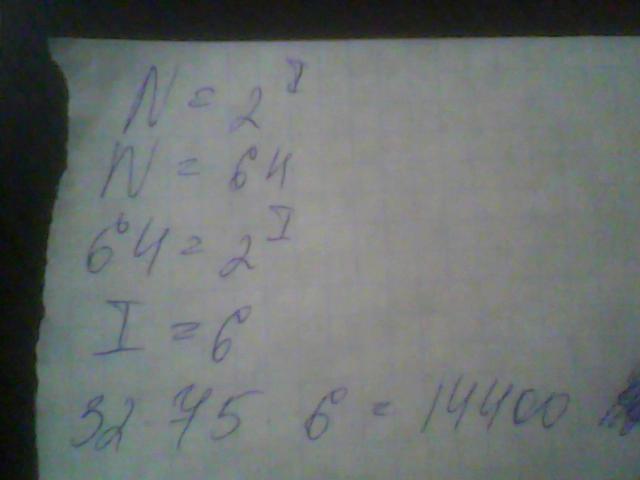 N = 2^I
N = 64
64 = 2^I
I = 6
32 · 75 · 6 = 14400